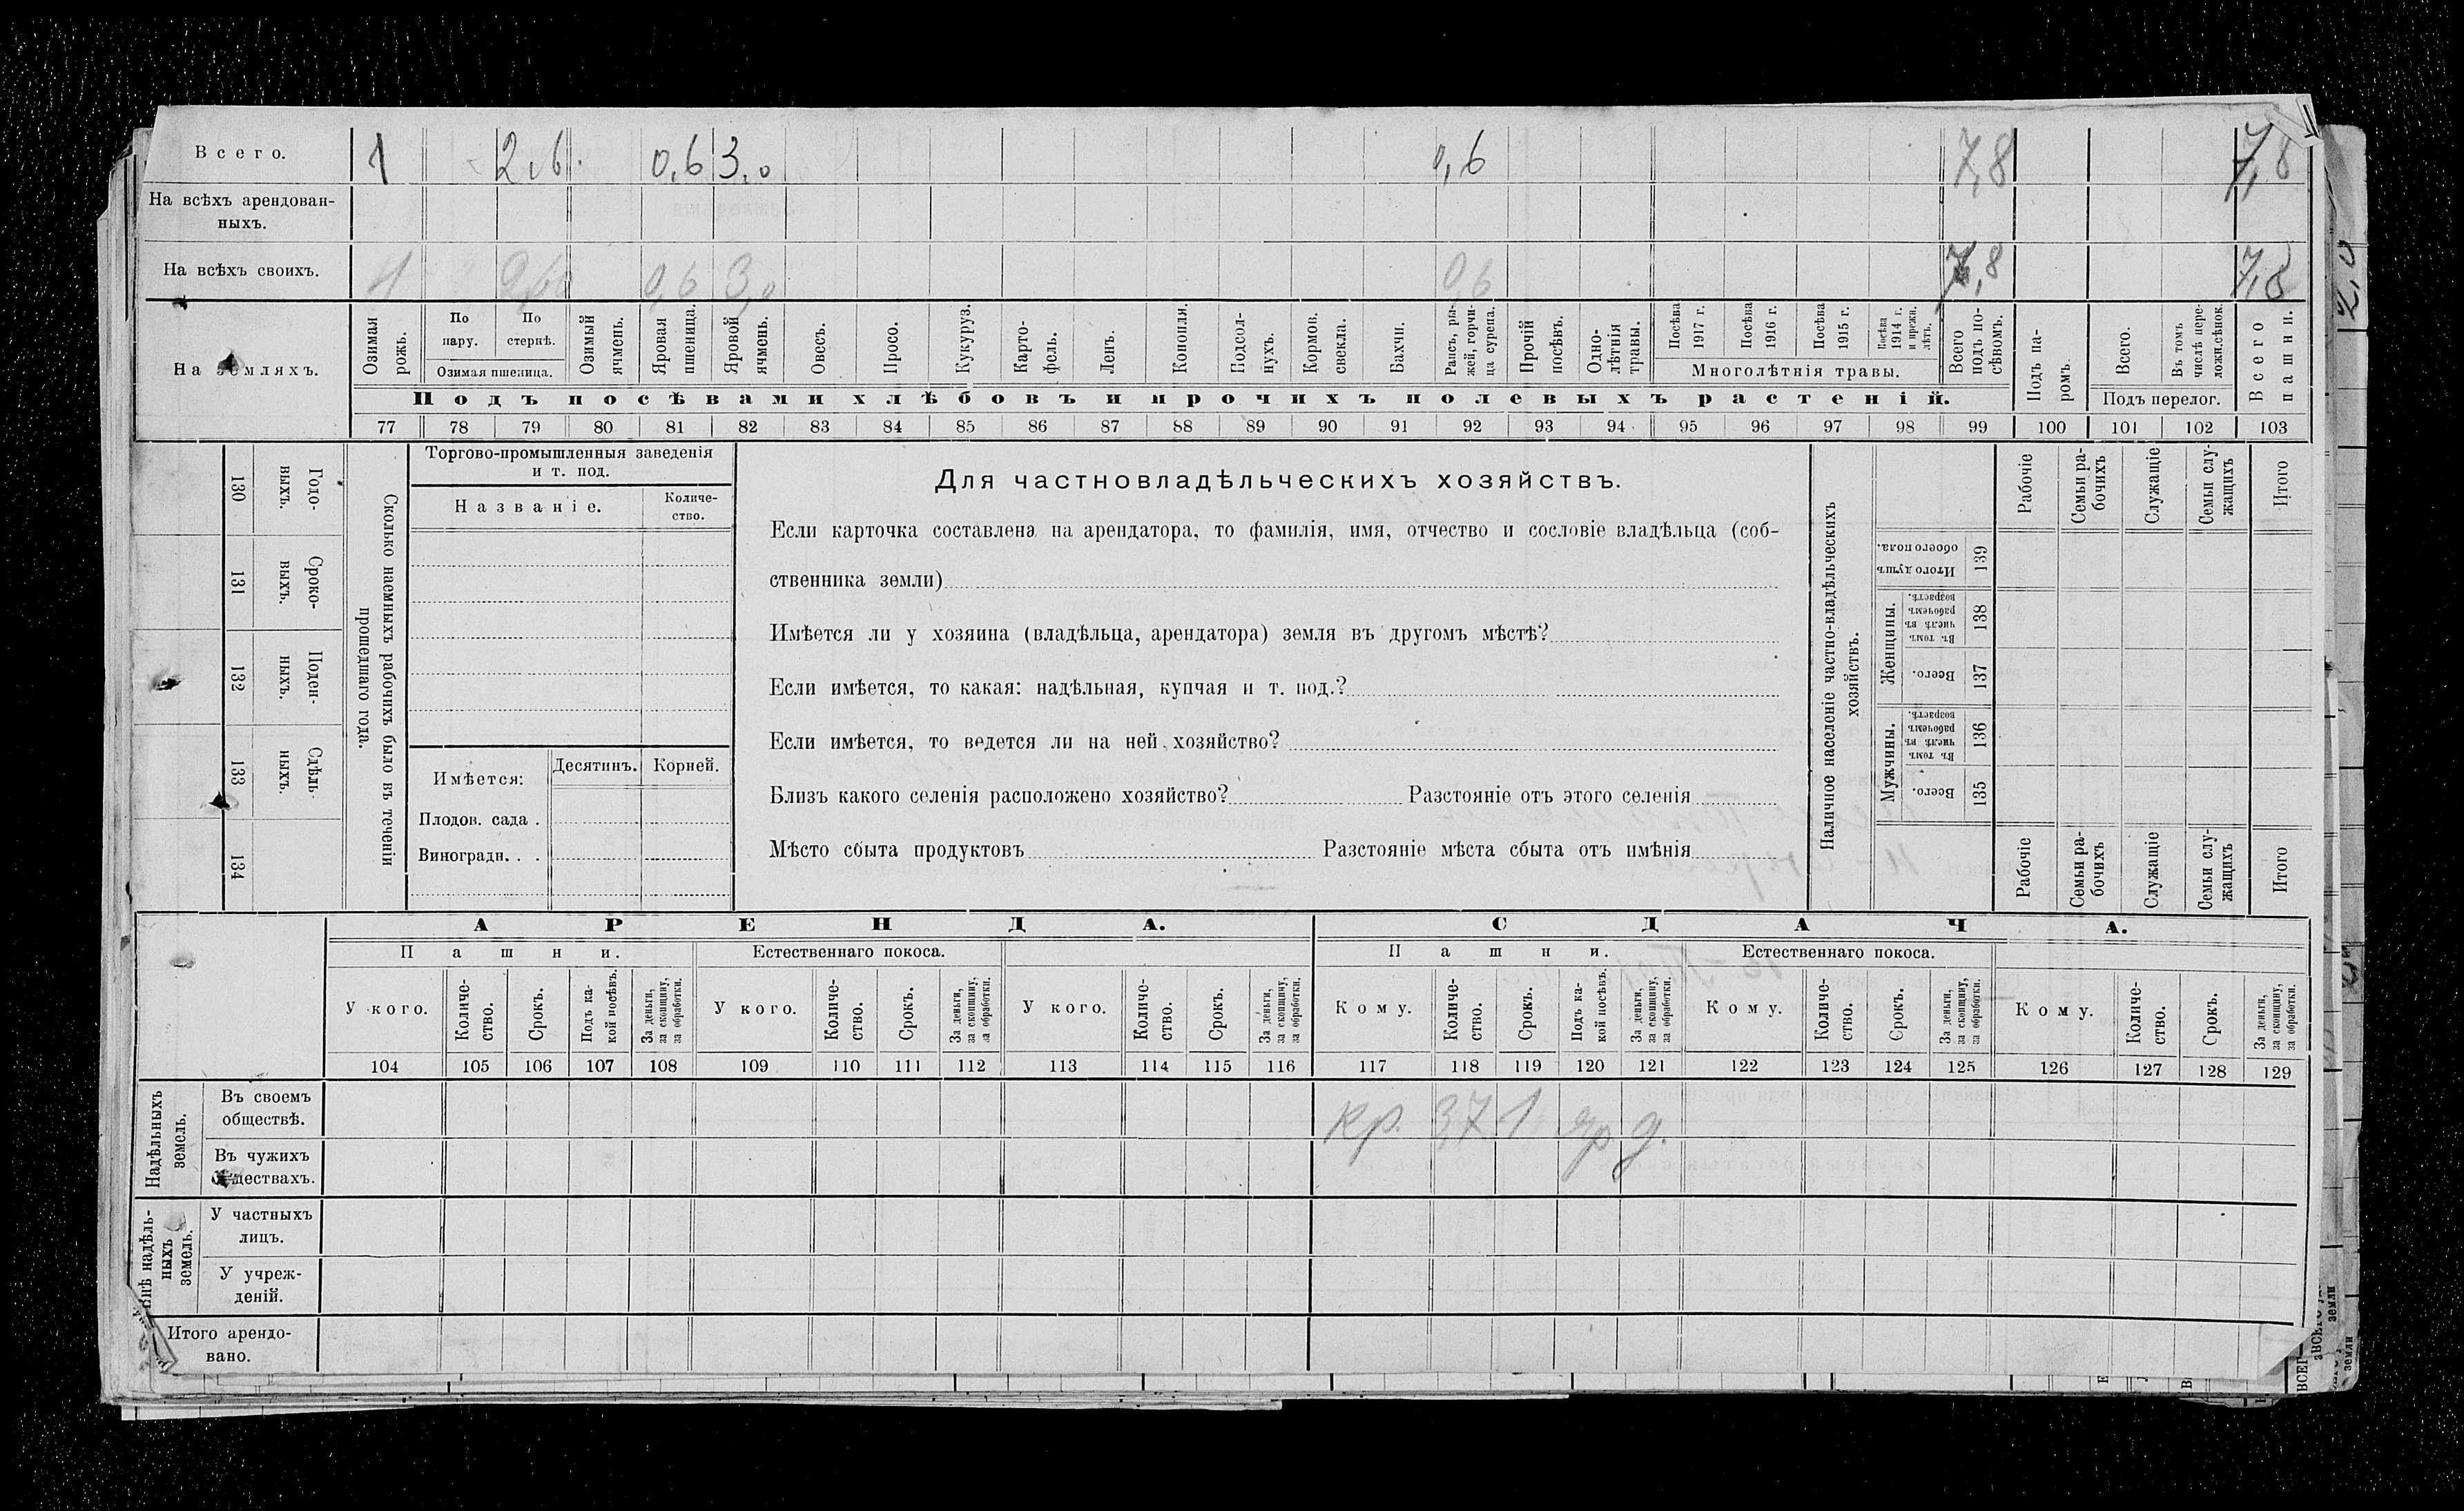 Всего. 1 2,6 0,6 3,0 0,6 7,8 7,8
На всѣхъ арендован-
ныхъ.
На всѣхъ своихъ. 1 2,6 0,6 3,0 0,6 7,8 7,8
На земляхъ.
Озимая рожь.
По пару.
По стернѣ.
Озимая пшеница.
Озимый ячмень.
Яровая пшеница.
Яровой ячмень.
Овесъ.
Просо.
Кукуруз.
Карто-
фель.
Ленъ.
Конопля.
Подсол-
нухъ.
Кормов. свекла.
Бахчи.
Рапсъ, ры-
жей, горчи-
ца сурепа.
Прочій посѣвъ.
Одно-
лѣтнія травы.
Посѣва 1917 г.
Посѣва 1916 г.
Посѣва 1915 г.
Посѣва 1914 г. и прежн. лѣтъ.
Многолѣтнія травы.
Всего подъ по-
сѣвомъ.
Подъ па-
ромъ.
Всего.
Въ томъ числѣ пере-
ложн. сѣнок.
Подъ перелог.
Всего пашни.
Подъ посѣвами хлѣбовъ и прочихъ полевыхъ растеній.
77 78 79 80 81 82 83 84 85 86 87 88 89 90 91 92 93 94 95 96 97 98 99 100 101 102 103
130 Годо-
выхъ.
131 Сроко-
выхъ.
132 Поден-
ныхъ.
133 Сдѣль-
ныхъ.
134
Сколько наемныхъ рабочихъ было въ теченіи
прошедшаго года.
Торгово-промышленныя заведенія
и т. под.
Названіе.
Количе-
ство.
Имѣется:
Десятинъ. Корней.
Плодов. сада .
Виноградн. . .
Для частновладѣльческихъ хозяйствъ.
Если карточка составлена на арендатора, то фамилія, имя, отчество и сословіе владѣльца (соб-
ственника земли)
Имѣется ли у хозяина (владѣльца, арендатора) земля въ другомъ мѣстѣ?
Если имѣется, то какая: надѣльная, купчая и т. под.?
Если имѣется, то ведется ли на ней хозяйство?
Близъ какого селенія расположено хозяйство? Разстояніе отъ этого селенія
Мѣсто сбыта продуктовъ Разстояніе мѣста сбыта отъ имѣнія
Наличное населеніе частно-владѣльческихъ
хозяйствъ.
Рабочіе
Семьи ра-
бочихъ
Служащіе
Семьи слу-
жащихъ
Итого
Итого душъ обоего пола. 139
Женщины.
Въ томъ числѣ въ рабочемъ возрастѣ. 138
Всего. 137
Мужчины.
Въ томъ числѣ въ рабочемъ возрастѣ. 136
Всего. 135
Рабочіе
Семьи ра-
бочихъ
Служащіе
Семьи слу-
жащихъ
Итого
АРЕНДА. СДАЧА.
Пашни. Естественнаго покоса. Пашни. Естественнаго покоса.
У кого.
Количе-
ство.
Срокъ.
Подъ ка-
кой посѣвъ.
За деньги,
за скопщину,
за обработки.
У кого.
Количе-
ство.
Срокъ.
За деньги,
за скопщину,
за обработки.
У кого.
Количе-
ство.
Срокъ.
За деньги,
за скопщину,
за обработки.
Кому.
Количе-
ство.
Срокъ.
Подъ ка-
кой посѣвъ.
За деньги,
за скопщину,
за обработки.
Кому.
Количе-
ство.
Срокъ.
За деньги,
за скопщину,
за обработки.
Кому.
Количе-
ство.
Срокъ.
За деньги,
за скопщину,
за обработки.
104 105 106 107 108 109 110 111 112 113 114 115 116 117 118 119 120 121 122 123 124 125 126 127 128 129
Надѣльныхъ
земель.
Въ своемъ
обществѣ.
кр. 3,7 1 яр д.
Въ чужихъ
обществахъ.
Внѣ надѣль-
ныхъ
земель.
У частныхъ
лицъ.
У учреж-
деній.
Итого арендо-
вано.